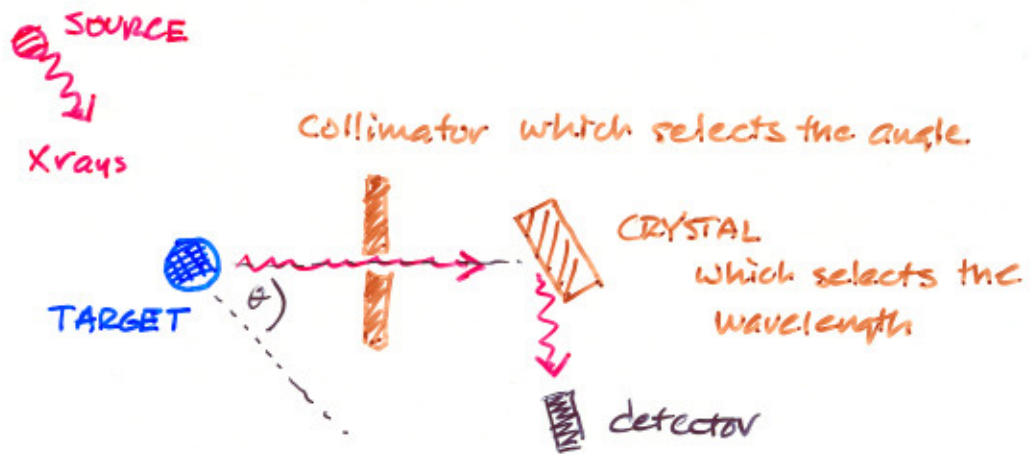 SOURCE
Xrays
Collimator which selects the angle.
CRYSTAL
which selects the
wavelength
θ
TARGET
detector